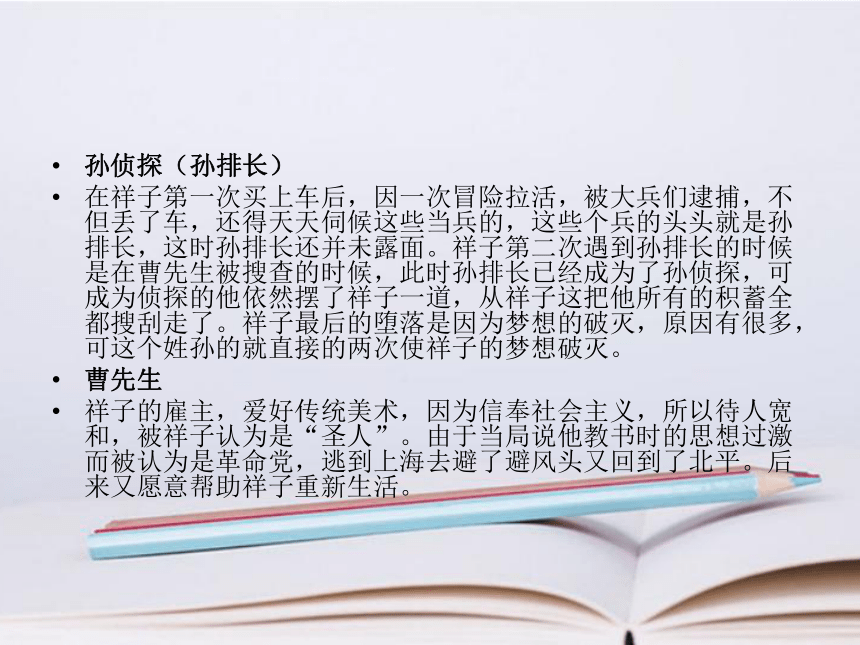 • 孙侦探（孙排长）
• 在祥子第一次买上车后，因一次冒险拉活，被大兵们逮捕，不
但丢了车，还得天天伺候这些当兵的，这些个兵的头头就是孙
排长，这时孙排长还并未露面。祥子第二次遇到孙排长的时候
是在曹先生被搜查的时候，此时孙排长已经成为了孙侦探，可
成为侦探的他依然摆了祥子一道，从祥子这把他所有的积蓄全
都搜刮走了。祥子最后的堕落是因为梦想的破灭，原因有很多，
可这个姓孙的就直接的两次使祥子的梦想破灭。
• 曹先生
• 祥子的雇主，爱好传统美术，因为信奉社会主义，所以待人宽
和，被祥子认为是“圣人”。由于当局说他教书时的思想过激
而被认为是革命党，逃到上海去避了避风头又回到了北平。后
来又愿意帮助祥子重新生活。